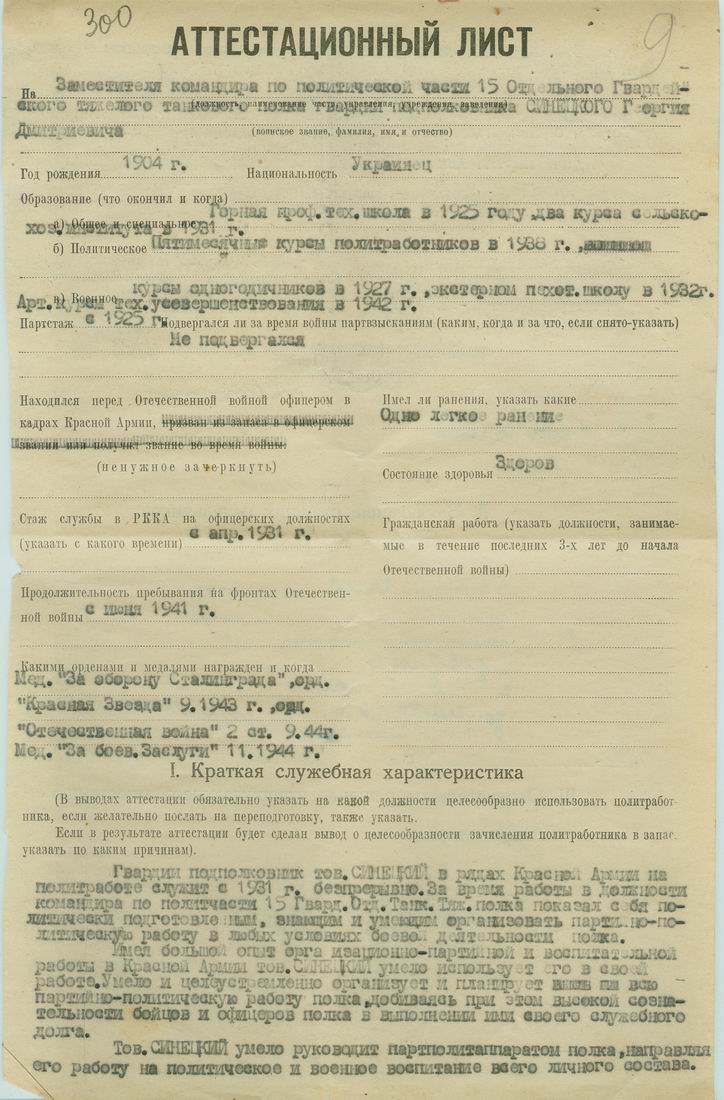 300
9
АТТЕСТАЦИОННЫЙ ЛИСТ
На Заместителя командира по политической части 15 Отдельного Гвардей-
ского тяжелого танкового полка гвардии подполковника СИНЕЦКОГО Георгия
(должность, наименование части, управления, учреждения, заведения)
Дмитриевича
(воинское звание, фамилия, имя и отчество)
Год рождения 1904 г. Национальность Украинец
Образование (что окончил и когда)
а) Общее и специальное Горная проф.тех.школа в 1925 году,два курса сельско-
хоз. в 1931 г.
б) Политическое Пятимесячные курсы политработников в 1938 г.,
в) Военное курсы одногодичников в 1927 г.,экстерном пехот.школу в 1932г.
Арт.курсы тех.усовершенствования в 1942 г.
Партстаж с 1925 г. Подвергался ли за время войны партвзысканиям (каким, когда и за что, если снято-указать)
Не подвергался
Находился перед Отечественной войной офицером в
кадрах Красной Армии, призван из запаса в офицерском
звании или получил звание во время войны.
(ненужное зачеркнуть)
Имел ли ранения, указать какие
Одно легкое ранение
Состояние здоровья Здоров
Стаж службы в РККА на офицерских должностях
(указать с какого времени) с апр.1931 г.
Гражданская работа (указать должности, занимае-
мые в течение последних 3-х лет до начала
Отечественной войны)
Продолжительность пребывания на фронтах Отечествен-
ной войны с июня 1941 г.
Какими орденами и медалями награжден и когда
Мед. "За оборону Сталинграда",орд.
"Красная Звезда" 9.1943 г.,орд.
"Отечественная война" 2 ст. 9.44г.
Мед. "За боев.Заслуги" 11.1944 г.
I. Краткая служебная характеристика
(В выводах аттестации обязательно указать на какой должности целесообразно использовать политработ-
ника, если желательно послать на переподготовку, также указать.
Если в результате аттестации будет сделан вывод о целесообразности зачисления политработника в запас.
указать по каким причинам).
Гвардии подполковник тов.СИНЕЦКИЙ в рядах Красной Армии на
политработе служит с 1931 г. безпрерывно.За время работы в должности
командира по политчасти 15 Гвард.Отд.Танк.Тяж.полка показал себя по-
литически подготовленным, знающим и умеющим организовать партийно-по-
литическую работу в любых условиях боевой деятельности полка.
Имея большой опыт организационно-партийной и воспитательной
работы в Красной Армии тов.СИНЕЦКИЙ умело использует его в своей
работе.Умело и целеустремленно организует и планирует всю
партийно-политическую работу полка,добиваясь при этом высокой созна-
тельности бойцов и офицеров полка в выполнении ими своего служебного
долга.
Тов.СИНЕЦКИЙ умело руководит партполитаппаратом полка,направляя
его работу на политическое и военное воспитание всего личного состава.